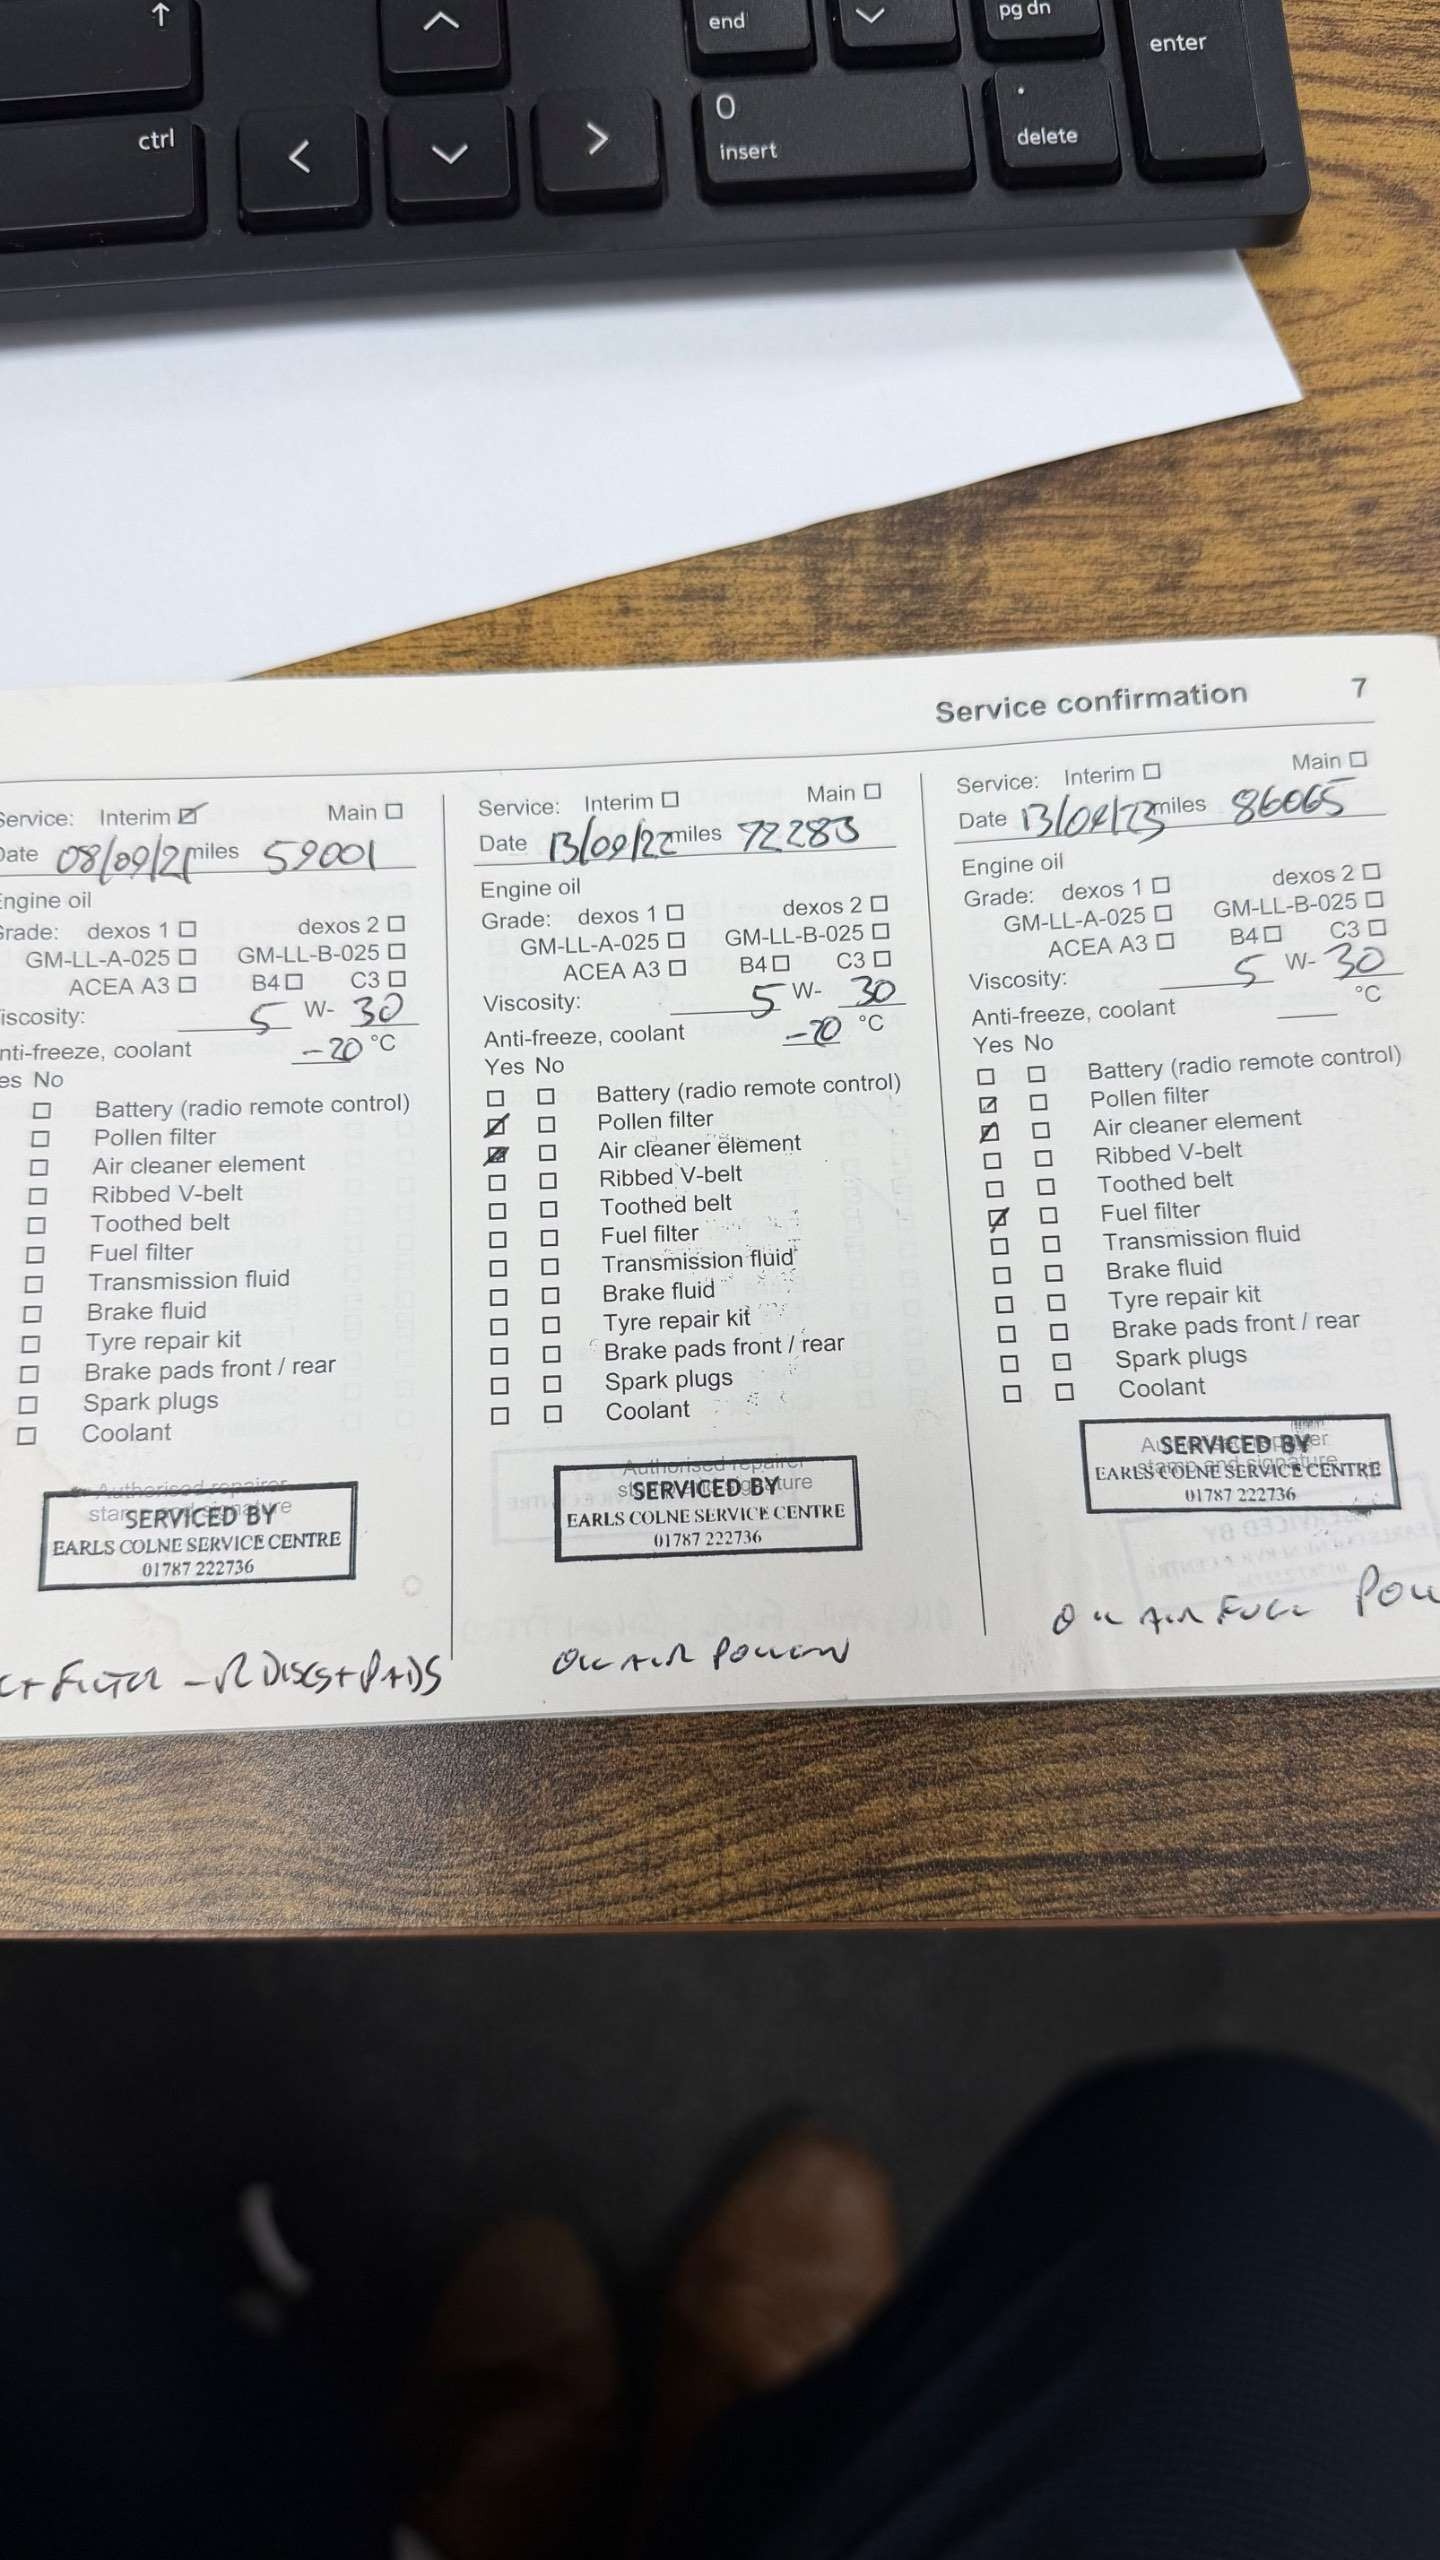 ↑
end
pg dn
enter
ctrl
0
insert
.
delete
Service confirmation 7
Service: Interim Main
Date 08/09/21 miles 59001
Engine oil
Grade: dexos 1 dexos 2
GM-LL-A-025 GM-LL-B-025
ACEA A3 B4 C3
Viscosity: 5 W- 30
Anti-freeze, coolant -20 °C
Yes No
Battery (radio remote control)
Pollen filter
Air cleaner element
Ribbed V-belt
Toothed belt
Fuel filter
Transmission fluid
Brake fluid
Tyre repair kit
Brake pads front / rear
Spark plugs
Coolant
Authorised repairer
stamp and signature
SERVICED BY
EARLS COLNE SERVICE CENTRE
01787 222736
+ FILTER - R DISCS + PADS
Service: Interim Main
Date 13/09/22 miles 72283
Engine oil
Grade: dexos 1 dexos 2
GM-LL-A-025 GM-LL-B-025
ACEA A3 B4 C3
Viscosity: 5 W- 30
Anti-freeze, coolant -20 °C
Yes No
Battery (radio remote control)
Pollen filter
Air cleaner element
Ribbed V-belt
Toothed belt
Fuel filter
Transmission fluid
Brake fluid
Tyre repair kit
Brake pads front / rear
Spark plugs
Coolant
Authorised repairer
stamp and signature
SERVICED BY
EARLS COLNE SERVICE CENTRE
01787 222736
OIL AIR POLLEN
Service: Interim Main
Date 13/09/23 miles 86065
Engine oil
Grade: dexos 1 dexos 2
GM-LL-A-025 GM-LL-B-025
ACEA A3 B4 C3
Viscosity: 5 W- 30
Anti-freeze, coolant °C
Yes No
Battery (radio remote control)
Pollen filter
Air cleaner element
Ribbed V-belt
Toothed belt
Fuel filter
Transmission fluid
Brake fluid
Tyre repair kit
Brake pads front / rear
Spark plugs
Coolant
Authorised repairer
stamp and signature
SERVICED BY
EARLS COLNE SERVICE CENTRE
01787 222736
OIL AIR FUEL POLL